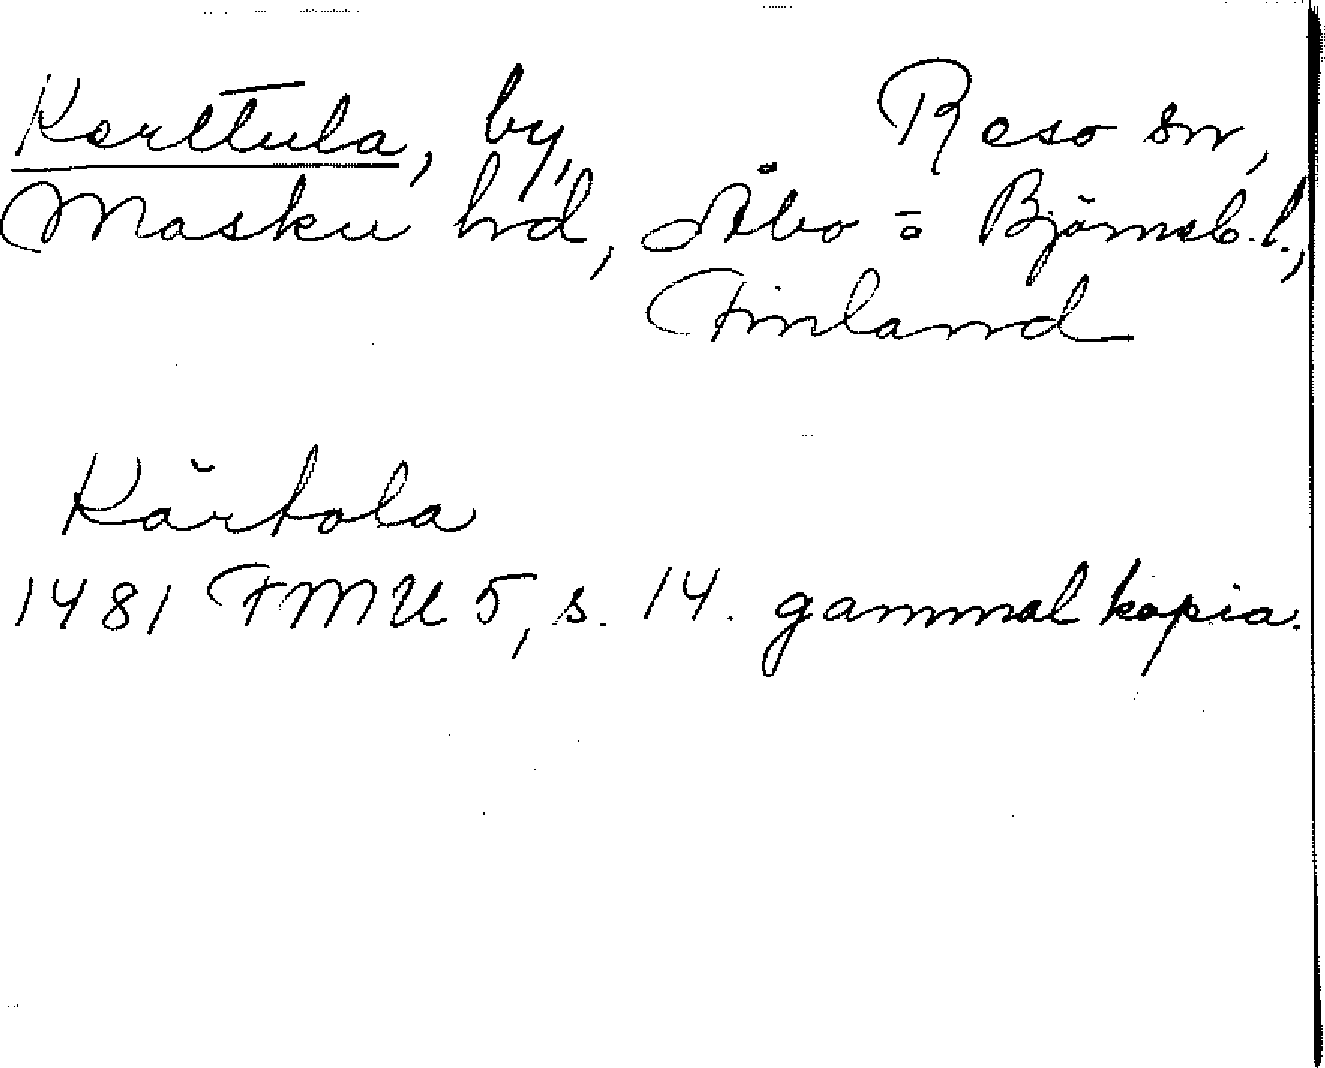 Kerttula, by, Reso sn,
Masku hd, Åbo = Björneb. l.,
Finland
Kärtola
1481 FMU 5, s. 14. gammal kopia.